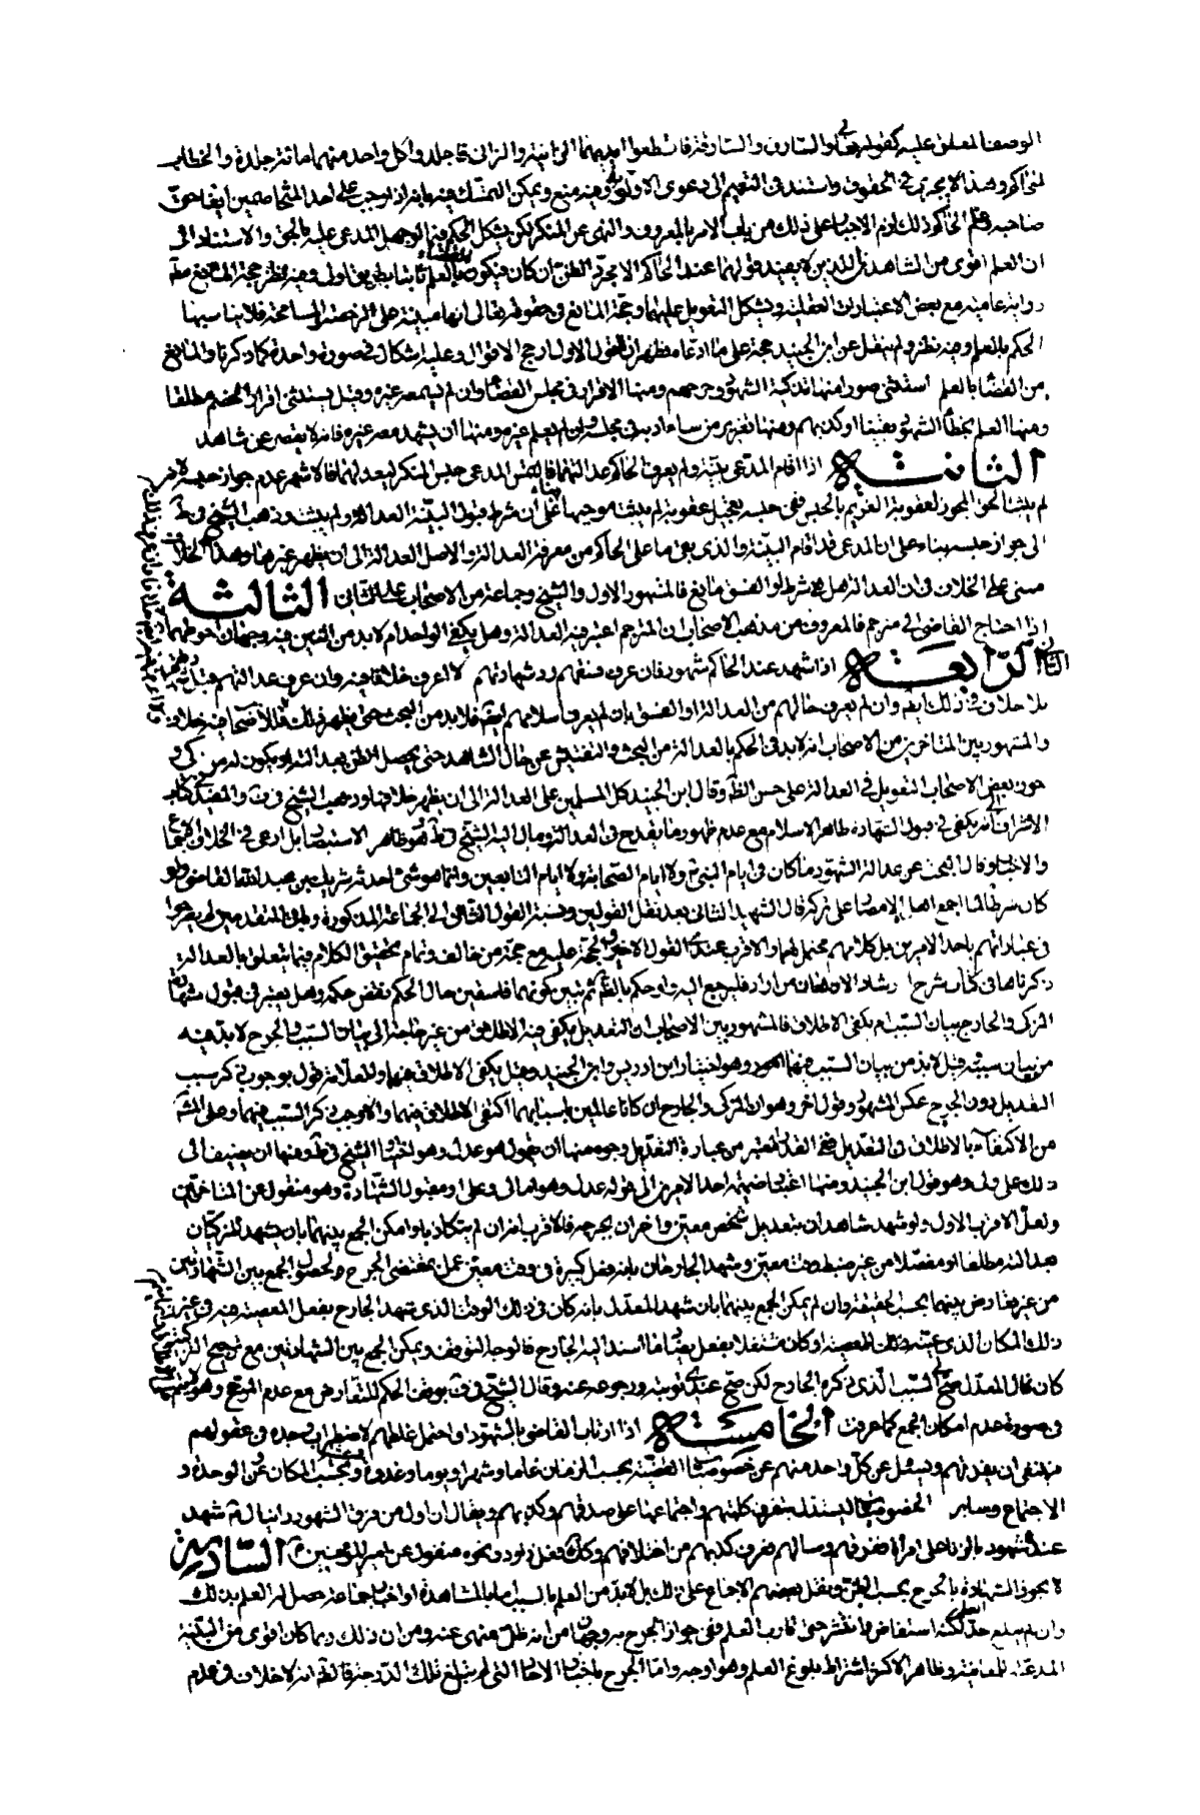 الوصف المعلق عليه كقوله تعالى والسارق والسارقة فاقطعوا ايديهما الزانية والزاني فاجلدوا كل واحد منهما مائة جلدة والخطاب
صاحبه فعلم الحاكم ذلك لزم الاجبار على ذلك من باب الامر بالمعروف والنهى عن المنكر لكن يشكل الحكم فيه لو جهل المدعى عليه بالحق والاستناد الى
ان العلم اقوى من الشاهدين اللذين لا يفيد قولهما عند الحاكم الا مجرد الظن ان كان فيكون القضاء بالعلم ثابتا بطريق اولى وفيه نظر حجة المانع
رواية عامية مع بعض الاعتبارات العقلية ويشكل التعويل عليهما وحجة المانع في حقوقه تعالى انها مبنية على الرخصة والمسامحة فلا يناسبها
الحكم بالعلم وفيه نظر ولم ينقل عن ابن الجنيد حجة على ما ادعاه فظهر ان القول الاول ارجح الاقوال وعليه اشكال في صورة واحدة كما ذكرنا والمانع
من القضاء بالعلم استثنى صورا منها تزكية الشهود وجرحهم ومنها الاقرار في مجلس القضاء وان لم يسمعه غيره وقيل يستثنى اقرار الخصم مطلقا
ومنها العلم بخطأ الشهود يقينا او كذبهم ومنها تعزير من ساء ادبه في مجلسه وان لم يعلم غيره ومنها ان يشهد معه غيره فانه لا يقصر عن شاهد
الثانية اذا اقام المدعى بينة ولم يعرف الحاكم عدالتهما فالتمس المدعى حبس المنكر ليعدلهما فالاشهر عدم جواز حبسه لانه
لم يثبت الحق المجوز لعقوبة الغريم بالحبس ففي حبسه تعجيل عقوبة لم يثبت موجبها بناء على ان شرط قبول البينة العدالة ولم يثبت وذهب الشيخ في ط
الى جواز حبسه بناء على ان المدعى قد اقام البينة والذى بقى ما على الحاكم من معرفة العدالة والاصل العدالة الى ان يظهر غيرها وهذا الخلاف
مبنى على الخلاف في ان العدالة هل هي شرط او الفسق مانع فالمشهور الاول والشيخ وجماعة من الاصحاب على الثانى الثالثة
اذا احتاج القاضى الى مترجم فالمعروف من مذهب الاصحاب ان المترجم اعتبر فيه العدالة وهل يكفى الواحد ام لا بد من اثنين فيه وجهان احوطهما الثانى
الرابعة اذا شهد عند الحاكم شهود فان عرف فسقهم رد شهادتهم لا اعرف خلافا فيه وان عرف عدالتهم قبل شهادتهم
بلا خلاف في ذلك ايضا وان لم يعرف حالهم من العدالة او الفسق بان لم يعرف اسلامهم ايضا فلا بد من البحث حتى يظهر ذلك
والمشهور بين المتاخرين من الاصحاب انه لا بد في الحكم بالعدالة من البحث والتفتيش عن حال الشاهد حتى يحصل الظن بعدالته او يكون له من يزكى و
جوز بعض الاصحاب التعويل في العدالة على حسن الظاهر وقال ابن الجنيد كل المسلمين على العدالة الى ان يظهر خلافها وذهب الشيخ في ف والمفيد في كتاب
الاشراف الى انه يكفى في قبول الشهادة ظاهر الاسلام مع عدم ظهور ما يقدح في العدالة ومال اليه الشيخ في ط وهو ظاهر الاستبصار بل ادعى في الخلاف الاجماع
والاخبار وقال البحث عن عدالة الشهود ما كان في ايام النبي ص ولا ايام الصحابة ولا ايام التابعين وانما هو شئ احدثه شريك بن عبد الله القاضى ولو
كان شرطا لما اجمع اهل الامصار على تركه قال الشهيد الثانى بعد نقل القولين ونسبة القول الثانى الى الجماعة المذكورة وباقى المتقدمين لم يصرحوا
في عباراتهم باحد الامرين بل كلامهم محتمل لهما والاقرب عندى القول الاخير وتمام تحقيق الكلام فيما يتعلق بالعدالة
ذكرناها في كتاب شرح ارشاد الاذهان من اراد فليرجع اليه ولو حكم بالظاهر ثم تبين كونهما فاسقين حال الحكم نقض حكمه وهل يعتبر في قبول شهادة
المزكى والجارح بيان السبب ام يكفى الاطلاق فالمشهور بين الاصحاب ان التعديل يكفى فيه الاطلاق من غير حاجة الى بيان السبب والجرح لا بد فيه
من بيان سببه وقيل لا بد من بيان السبب فيهما وهو اختيار ابن ادريس وابن الجنيد وقيل يكفى الاطلاق فيهما وللعلامة قول بوجوب ذكر سبب
التعديل دون الجرح عكس المشهور وقول اخر وهو ان المزكى والجارح ان كانا عالمين باسبابهما اكتفى الاطلاق فيهما والا وجب ذكر السبب فيهما وعلى المشهور
من الاكتفاء بالاطلاق في التعديل ففي القدر المعتبر من عبارة التعديل وجوه منها ان يقول هو عدل وهو اختيار الشيخ في ط ومنها ان يضيف الى
ذلك على ولى وهو قول ابن الجنيد ومنها اعتبار ضميمة احد الامرين الى قوله عدل وهو اما لى وعلى او مقبول الشهادة وهو منقول عن المتاخرين
ولعل الاقرب الاول ولو شهد شاهدان بتعديل شخص معين واخران بجرحه فالاقرب انه ان لم يتكاذبا وامكن الجمع بينهما بان يشهد المزكيان
بعدالته مطلقا او مفصلا من غير ضبط وقت معين ويشهد الجارحان بانه فعل كبيرة في وقت معين عمل بمقتضى الجرح لحصول الجمع بين الشهادتين
من غير تعارض بينهما بحسب الحقيقة وان لم يمكن الجمع بينهما بان شهد المعدل بانه كان في ذلك الوقت الذى شهد الجارح بفعل المعصية فيه في غير
ذلك المكان الذى عينه للمعصية او كان مشتغلا بفعل يضاد ما اسند اليه الجارح فالوجه التوقف ويمكن الجمع بين الشهادتين مع ترجيح التزكية
كان قال المعدل صح السبب الذى ذكره الجارح لكن صح عندى توبته ورجوعه عنه وقال الشيخ في ف يوقف الحكم للتعارض مع عدم المرجح وهو
في صورة عدم امكان الجمع كما عرفت الخامسة اذا ارتاب القاضى بالشهود او احتمل غلطهم لاضطراب وجده في عقولهم
فينبغى ان يفرقهم ويسئل عن كل واحد منهم عن خصوصيات القضية بحسب الزمان عاما وشهرا ويوما وغدوة وعشية وبحسب المكان وعن الوحدة و
الاجتماع وساير الخصوصيات ليستدل بتفرق كلمتهم واجتماعها على صدقهم وكذبهم ويقال ان اول من فرق الشهود دانيال شهد
عنده شهود بالزنا على امراة ففرقهم وسالهم فعرف كذبهم من اختلافهم وكذلك فعل داود ونحوه منقول عن امير المؤمنين ع السادسة
لا يجوز الشهادة بالجرح بحسب الظن ونقل بعضهم الاجماع على ذلك بل لا بد من العلم بالسبب اما بالمشاهدة او اخبار جماعة حصل له العلم بذلك
وان لم يبلغ حد العلم لكنه استفاض وانتشر حتى قارب العلم ففي جواز الجرح به وجهان من انه ظن منهى عنه ومن ان ذلك ربما كان اقوى من البينة
المدعية للمعاينة وظاهر الاكثر اشتراط بلوغ العلم وهو اوجه واما الجرح باخبار الاحاد التى لم يبلغ تلك الدرجة فالظاهر انه لا خلاف في عدم